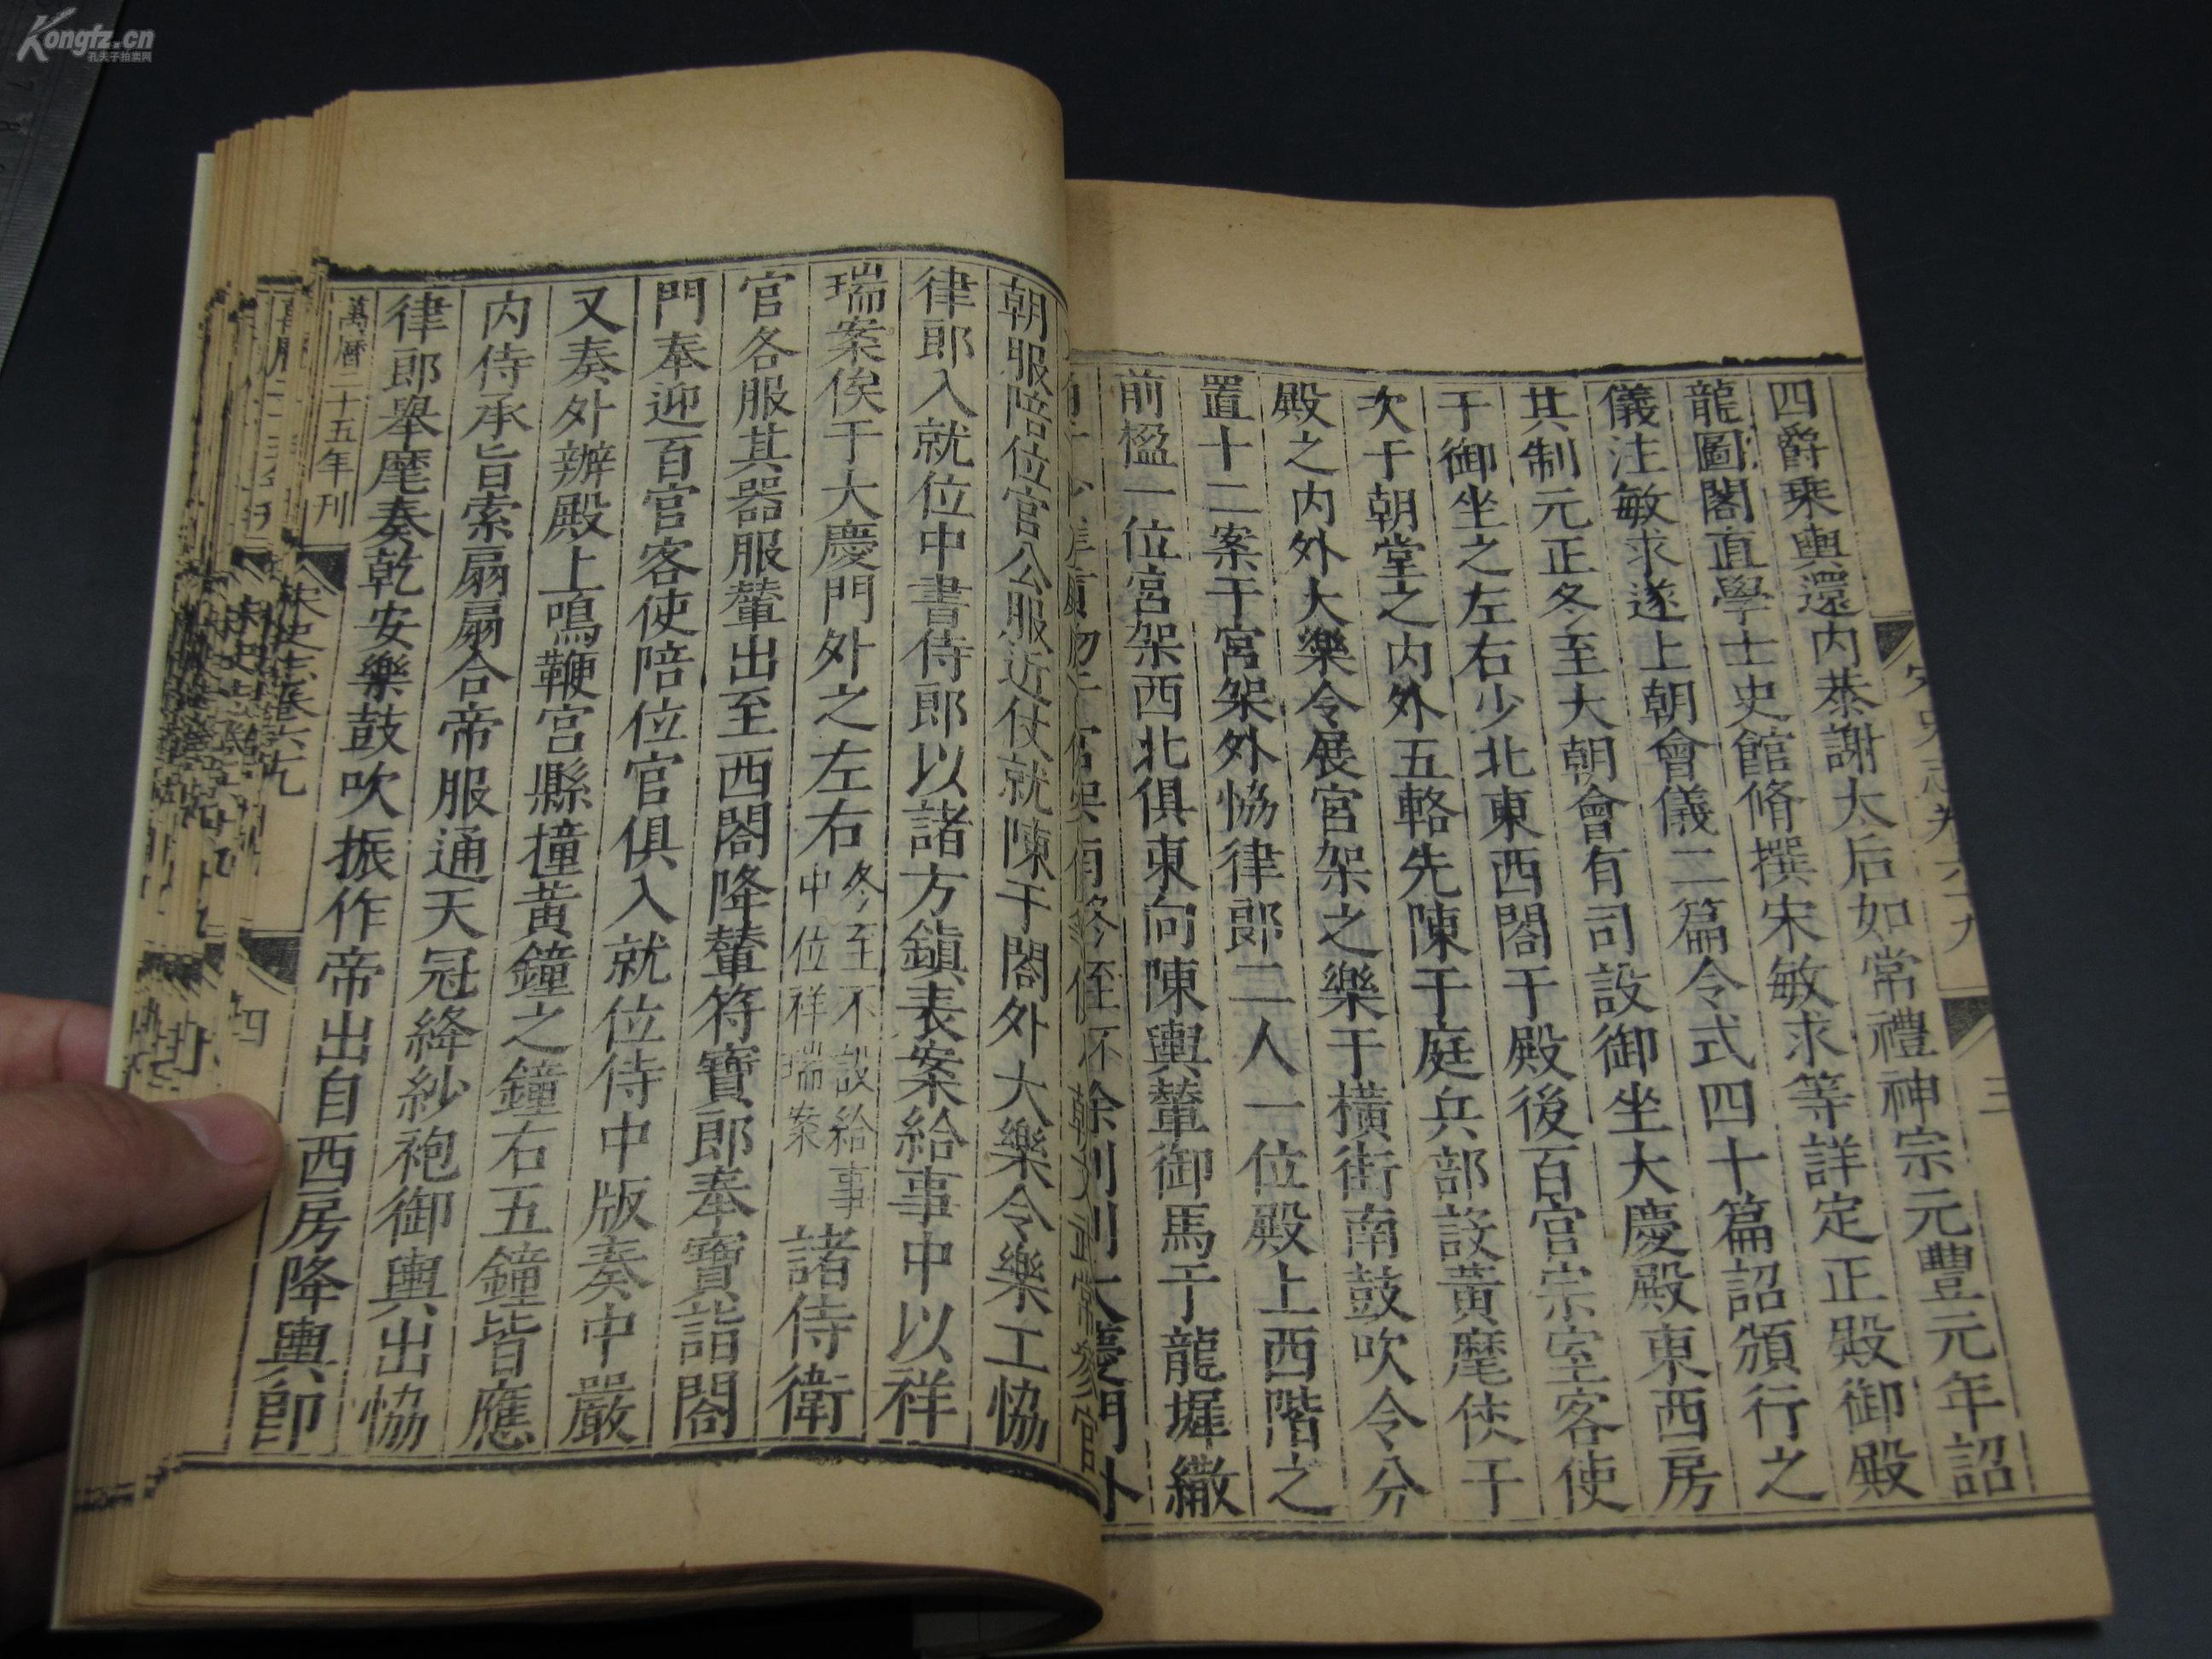 Kongfz.cn
孔夫子拍卖网
四爵乘輿還内恭謝太后如常禮神宗元豐元年詔
龍圖閣直學士史館脩撰宋敏求等詳定正殿御殿
儀注敏求遂上朝會儀二篇令式四十篇詔頒行之
其制元正冬至大朝會有司設御坐大慶殿東西房
于御坐之左右少北東西閤于殿後百官宗室客使
次于朝堂之内外五輅先陳于庭兵部設黃麾仗于
殿之内外大樂令展宮架之樂于橫街南鼓吹令分
置十二案于宮架外恊律郎二人一位殿上西階之
前楹一位宮架西北俱東向陳輿輦御馬于龍墀繖
朝服陪位官公服近仗就陳于閤外大樂令樂工恊
律郎入就位中書侍郎以諸方鎮表案給事中以祥
瑞案俟于大慶門外之左右冬至不設給事中位祥瑞案諸侍衛
官各服其器服輦出至西閤降輦符寶郎奉寶詣閤
門奉迎百官客使陪位官俱入就位侍中版奏中嚴
又奏外辦殿上鳴鞭宮縣撞黃鐘之鐘右五鐘皆應
内侍承旨索扇扇合帝服通天冠絳紗袍御輿出恊
律郎舉麾奏乾安樂鼓吹振作帝出自西房降輿卽
萬曆二十五年刊
宋史志卷六十九
四
三